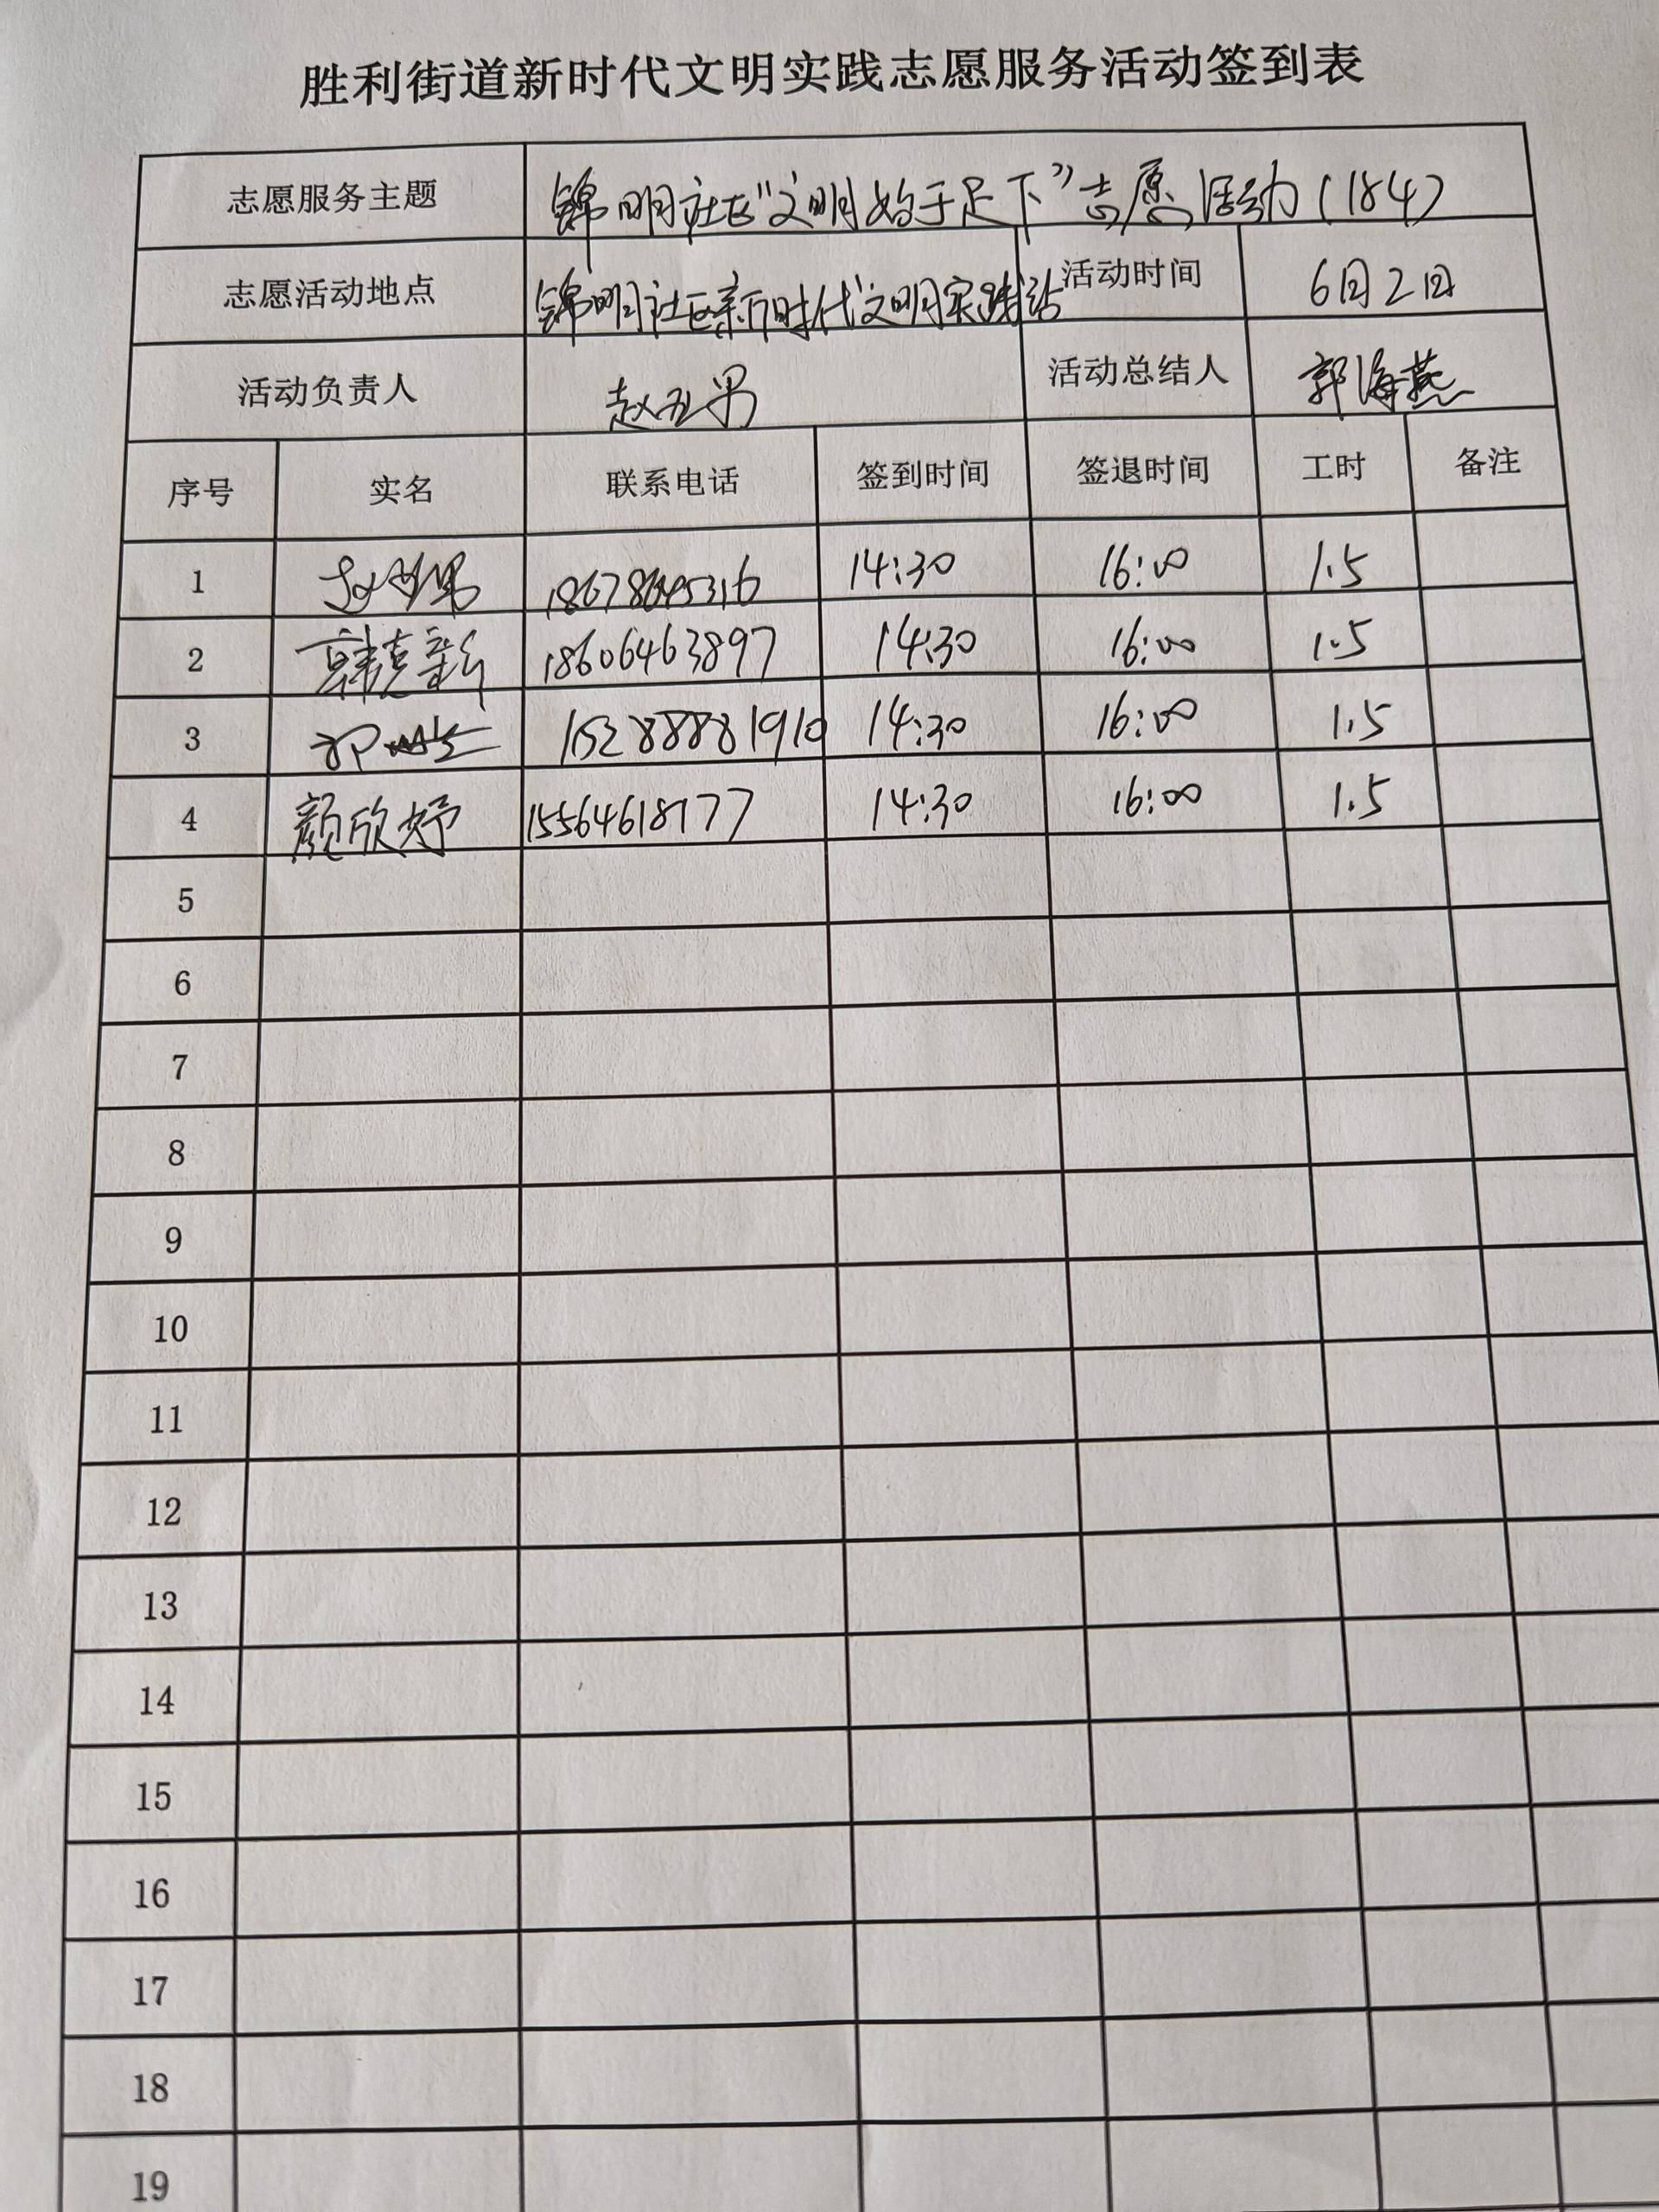 胜利街道新时代文明实践志愿服务活动签到表
志愿服务主题 锦明社区"文明始于足下"志愿活动(184)
志愿活动地点 锦明社区新时代文明实践站 活动时间 6月2日
活动负责人 赵 男 活动总结人 郭海燕
序号 实名 联系电话 签到时间 签退时间 工时 备注
1 14:30 16:00 1.5
2 韩克新 18606463897 14:30 16:00 1.5
3 15288881910 14:30 16:00 1.5
4 颜欣妤 15564618177 14:30 16:00 1.5
5
6
7
8
9
10
11
12
13
14
15
16
17
18
19